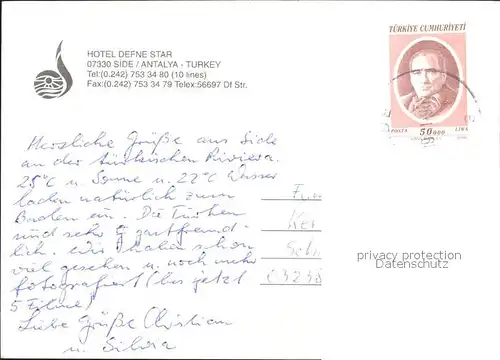 HOTEL DEFNE STAR
07330 SİDE / ANTALYA - TURKEY
Tel:(0.242) 753 34 80 (10 lines)
Fax:(0.242) 753 34 79 Telex:56697 Df Str.
TÜRKİYE CUMHURİYETİ
POSTA 50000 LİRA
Herzliche Grüße aus Side
an der türkischen Riviera.
25°C u. Sonne u. 22°C Wasser
laden natürlich zum
Baden ein. Die Türken
sind sehr gastfreund-
lich. Wir haben schon
viel gesehen u. noch mehr
fotografiert (bis jetzt
5 Filme)
Liebe Grüße Christian
u. Silvia
privacy protection
Datenschutz